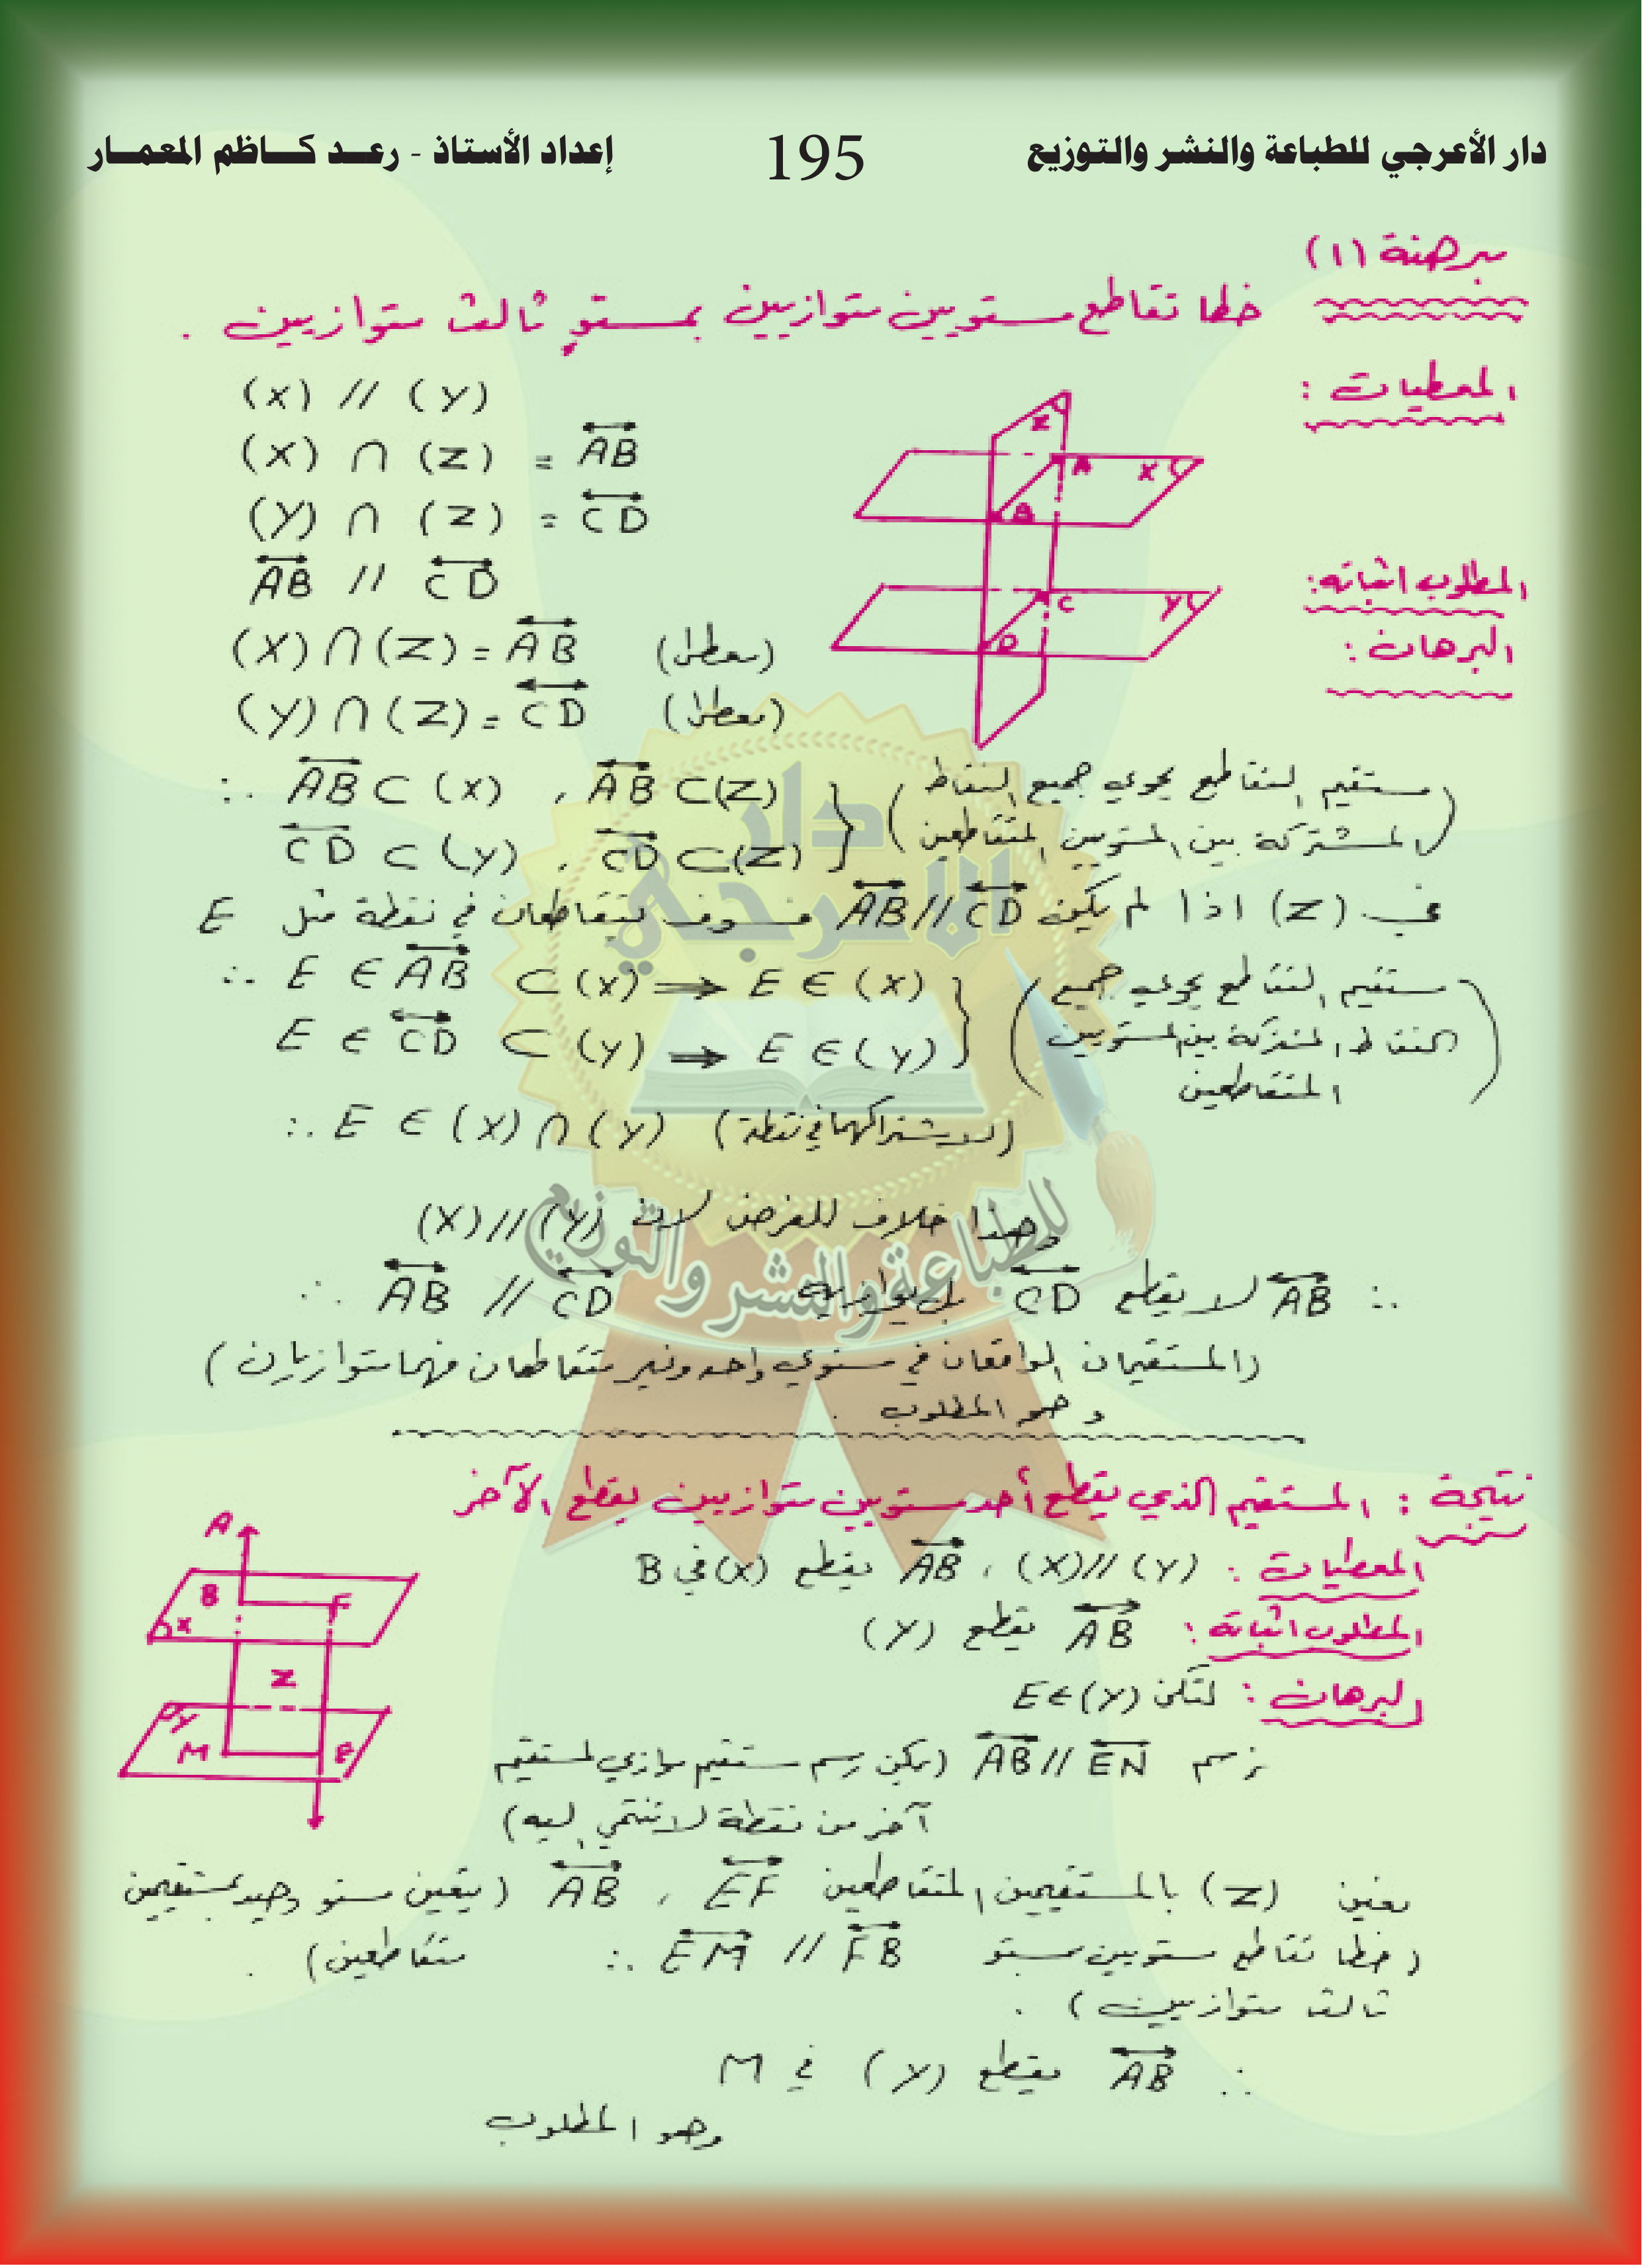 دار الأعرجي للطباعة والنشر والتوزيع 195 إعداد الأستاذ - رعـد كـاظم المعمـار
مبرهنة (١)
خطا تقاطع مستويين متوازيين بمستوٍ ثالث متوازيين .
المعطيات :
(X) // (Y)
(X) ∩ (Z) = AB
(Y) ∩ (Z) = CD
Z
A
X
B
C
Y
D
المطلوب اثباته:
AB // CD
البرهان :
(X) ∩ (Z) = AB (معطى)
(Y) ∩ (Z) = CD (معطى)
∴ AB ⊂ (X) , AB ⊂ (Z) } (مستقيم التقاطع يحوي جميع النقاط
CD ⊂ (Y) , CD ⊂ (Z) } المشتركة بين المستويين المتقاطعين)
في (Z) اذا لم يكن AB // CD فسوف يتقاطعان في نقطة مثل E
∴ E ∈ AB ⊂ (X) ⇒ E ∈ (X) } (مستقيم التقاطع يحوي جميع
E ∈ CD ⊂ (Y) ⇒ E ∈ (Y) } النقاط المشتركة بين المستويين
المتقاطعين)
∴ E ∈ (X) ∩ (Y) (لاشتراكهما في نقطة)
وهذا خلاف الفرض لان (X) // (Y)
∴ AB لا يقطع CD بل يوازيه ∴ AB // CD
(المستقيمان الواقعان في مستوي واحد وغير متقاطعان فهما متوازيان)
وهو المطلوب .
دار
الاعرجي
للطباعة والنشر والتوزيع
نتيجة : المستقيم الذي يقطع أحد مستويين متوازيين يقطع الآخر
المعطيات : (X) // (Y) ، AB يقطع (X) في B
المطلوب اثباته : AB يقطع (Y)
البرهان : لتكن E ∈ (Y)
A
B
F
X
Z
Y
M
E
نرسم AB // EN (يمكن رسم مستقيم موازي لمستقيم
آخر من نقطة لا تنتمي اليه)
نعين (Z) بالمستقيمين المتقاطعين EF ، AB (يتعين مستو وحيد بمستقيمين
متقاطعين) .
∴ EM // FB (خطا تقاطع مستويين بمستو
ثالث متوازيين) .
∴ AB يقطع (Y) في M
وهو المطلوب